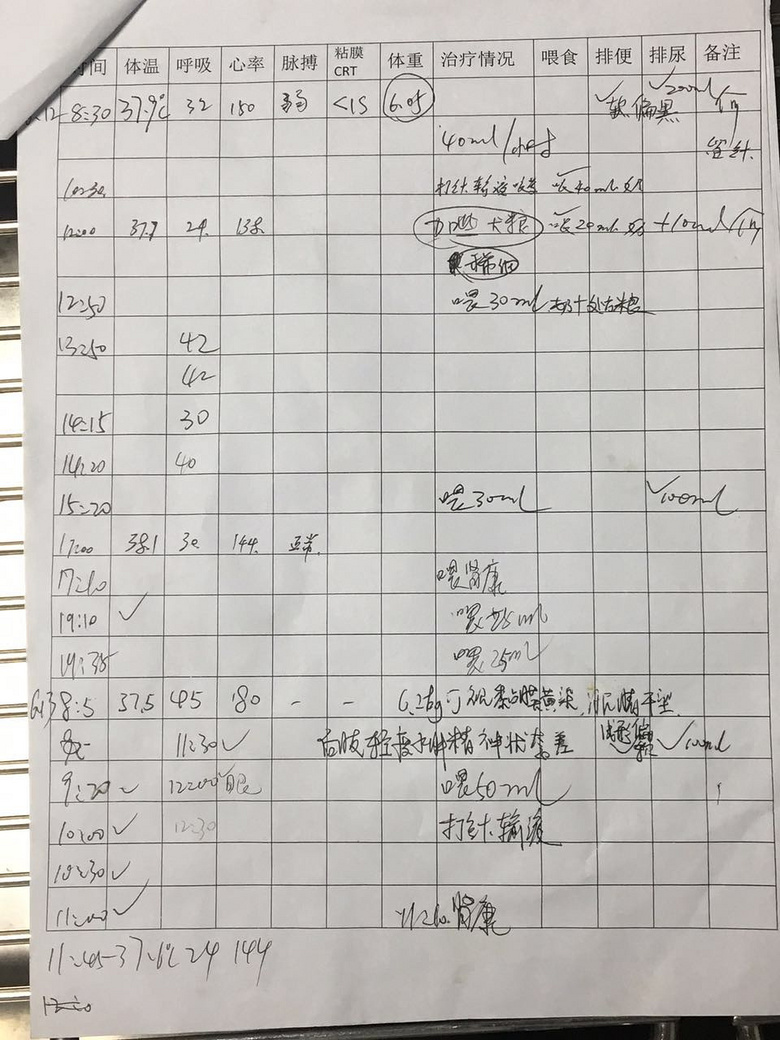 时间 体温 呼吸 心率 脉搏 粘膜CRT 体重 治疗情况 喂食 排便 排尿 备注
8:30 37.9℃ 32 150 弱 <1S 6.05 软 偏黑 200ml
40ml/小时 留针
10:30 打针输液 喂40ml奶
12:00 37.9 24 138 喂20ml奶 +10ml
稀细
12:50 喂30ml 奶+处方粮
13:50 42
42
14:15 30
14:20 40
15:20 喂30ml 100ml
17:00 38.1 30 144 正常
17:10 喂肾康
19:10 喂 25ml
19:35 喂25ml
6.13 8:5 37.5 45 180 - - 6.2kg 可视黏膜黄染,
11:30 后肢轻度水肿精神状态差 成形偏 100ml
9:20 12:00 眼 喂50ml
10:00 12:30 打针输液
10:30
11:00 11:20 肾康
11:45 37.6℃ 24 144